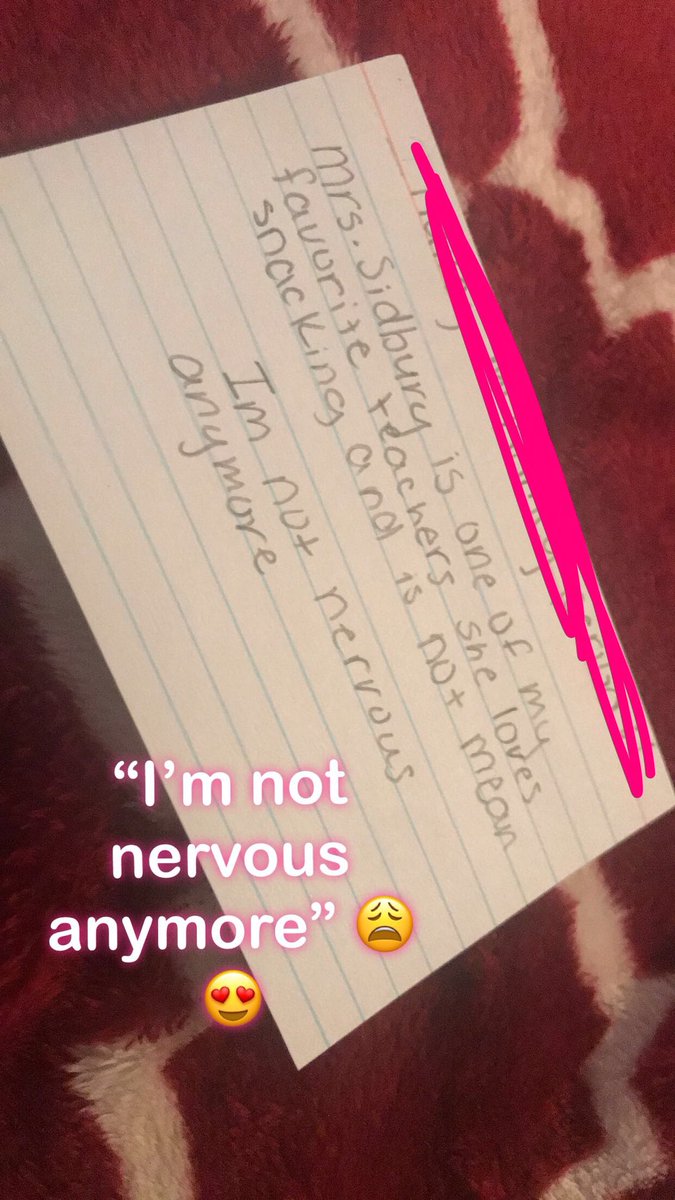 Mrs. Sidbury is one of my
favorite teachers she loves
snacking and is not mean
Im not nervous
anymore
“I’m not
nervous
anymore” 😩
😍